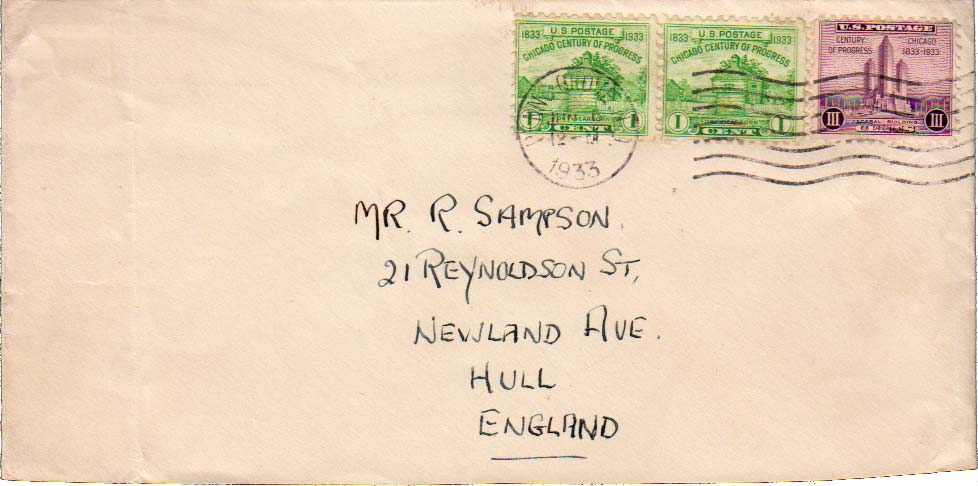 1833 U.S. POSTAGE 1933
CHICAGO CENTURY OF PROGRESS
1 1
CENT
1833 U.S. POSTAGE 1933
CHICAGO CENTURY OF PROGRESS
1 1
CENT
U.S. POSTAGE
CENTURY OF PROGRESS
CHICAGO 1833-1933
III III
FEDERAL BUILDING
1933
MR. R. SAMPSON.
21 REYNOLDSON ST,
NEWLAND AVE.
HULL
ENGLAND